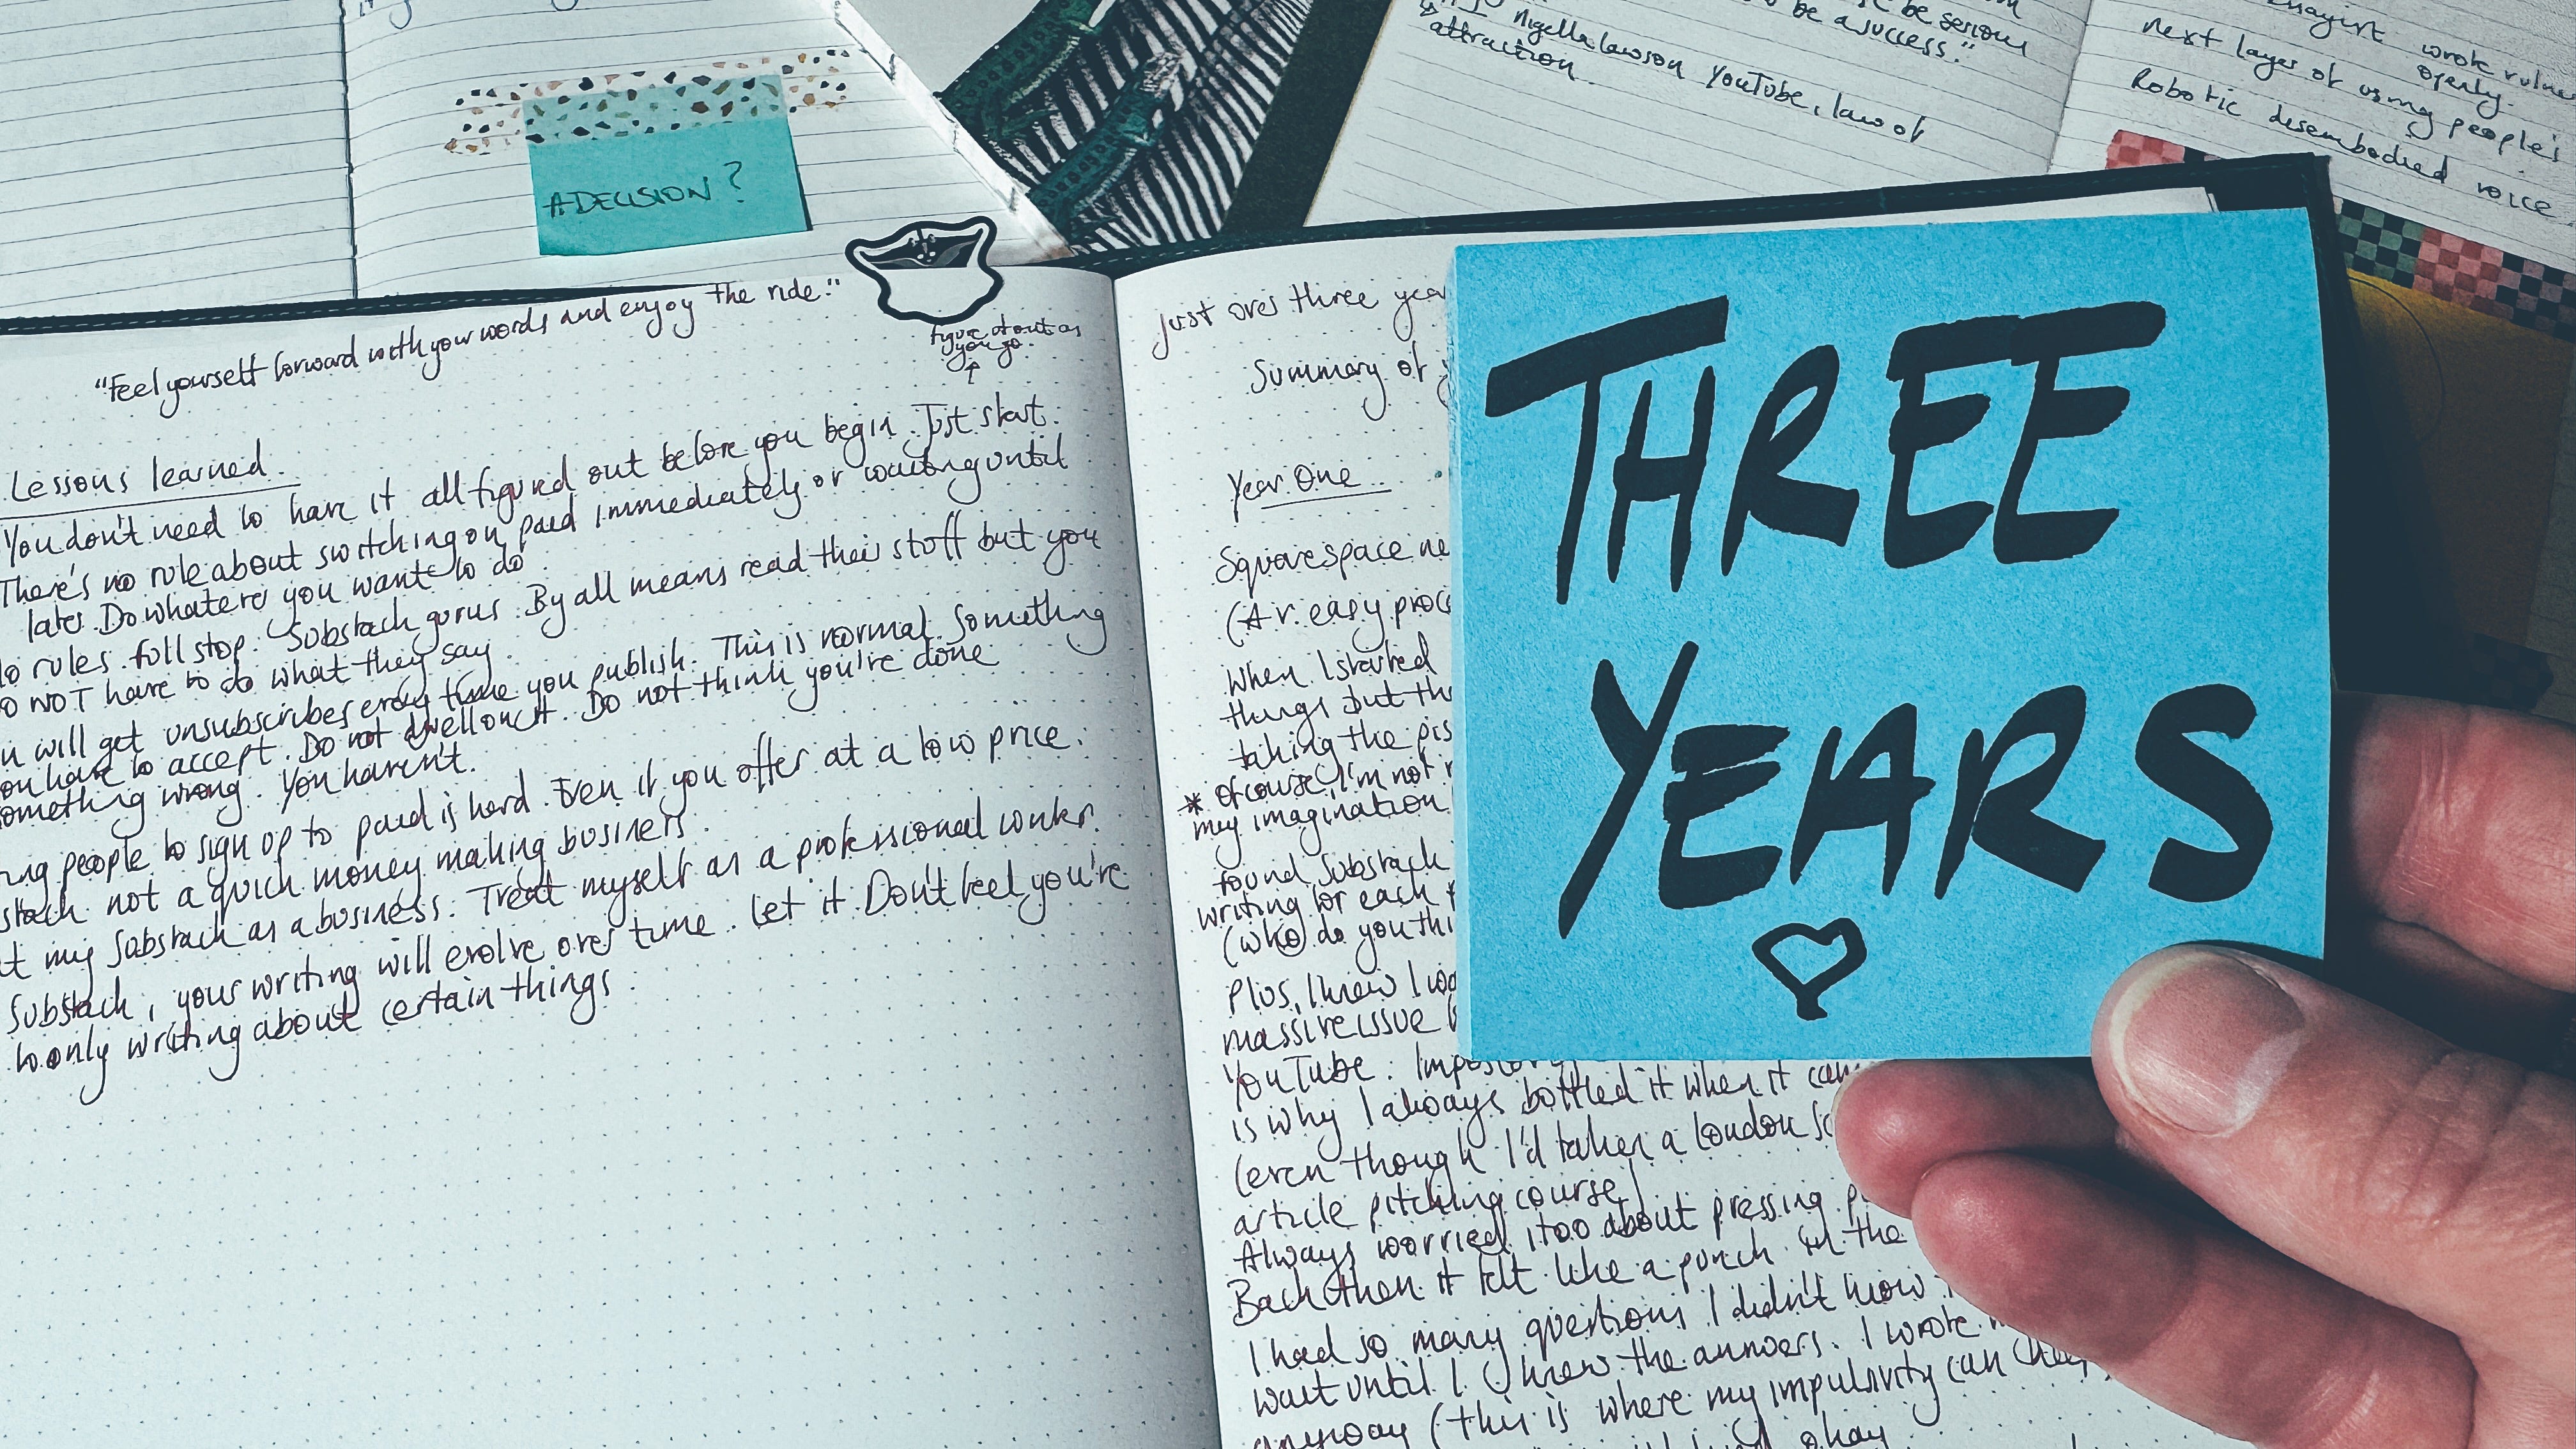 A DECISION?
be serious
be a success."
Nigella Lawson YouTube, law of
attraction.
wrote
openly.
next layer of using people's
Robotic disembodied voice
"Feel yourself forward with your words and enjoy the ride."
figure it out as
you go.
Lessons learned.
You don't need to have it all figured out before you begin. Just start.
There's no rule about switching on paid immediately or waiting until
later. Do whatever you want to do.
rules full stop. Substack gurus. By all means read their stuff but you
do NOT have to do what they say.
will get unsubscribes every time you publish. This is normal. Something
you have to accept. Do not dwell on it. Do not think you're done
something wrong. You haven't.
people to sign up to paid is hard. Even if you offer at a low price.
not a quick money making business.
my Substack as a business. Treat myself as a professional
Substack, your writing will evolve over time. Let it. Don't feel you're
to only writing about certain things.
Just over three year
Summary of
Year One
Squarespace ne
(A v. easy proc
When I started
things but th
taking the pis
* Of course, I'm not
my imagination
found Substack
writing for each
(who do you thi
Plus, I knew I wo
massive issue
YouTube.
is why I always bottled it when it
(even though I'd taken a London
article pitching course)
Always worried, too about pressing
Back then it felt like a punch in the
I had so many questions I didn't know
wait until I knew the answers. I wrote
anyway (this is where my impulsivity can
okay
THREE
YEARS